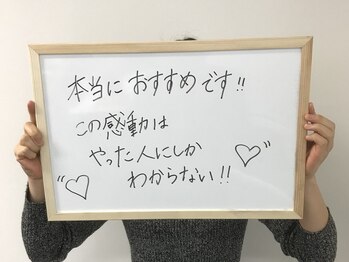 本当に おすすめです!!
この感動は
やった人にしか
わからない!!